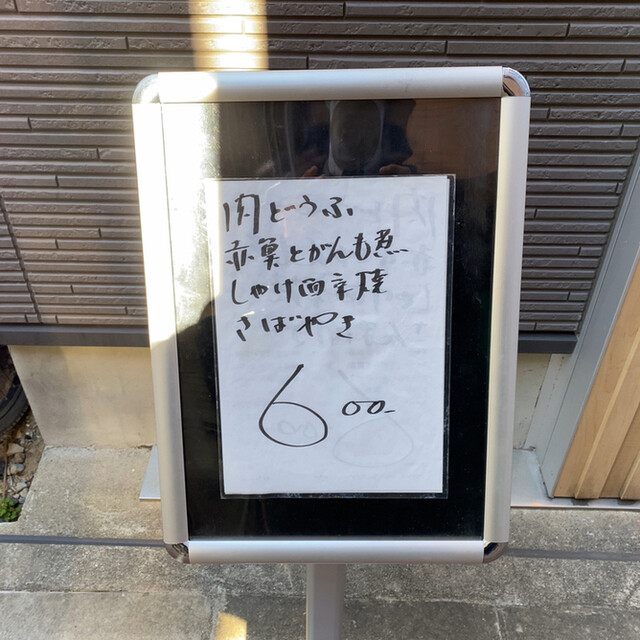 肉どうふ
赤魚とがんも煮
しゃけ西京焼
さばやき
600-